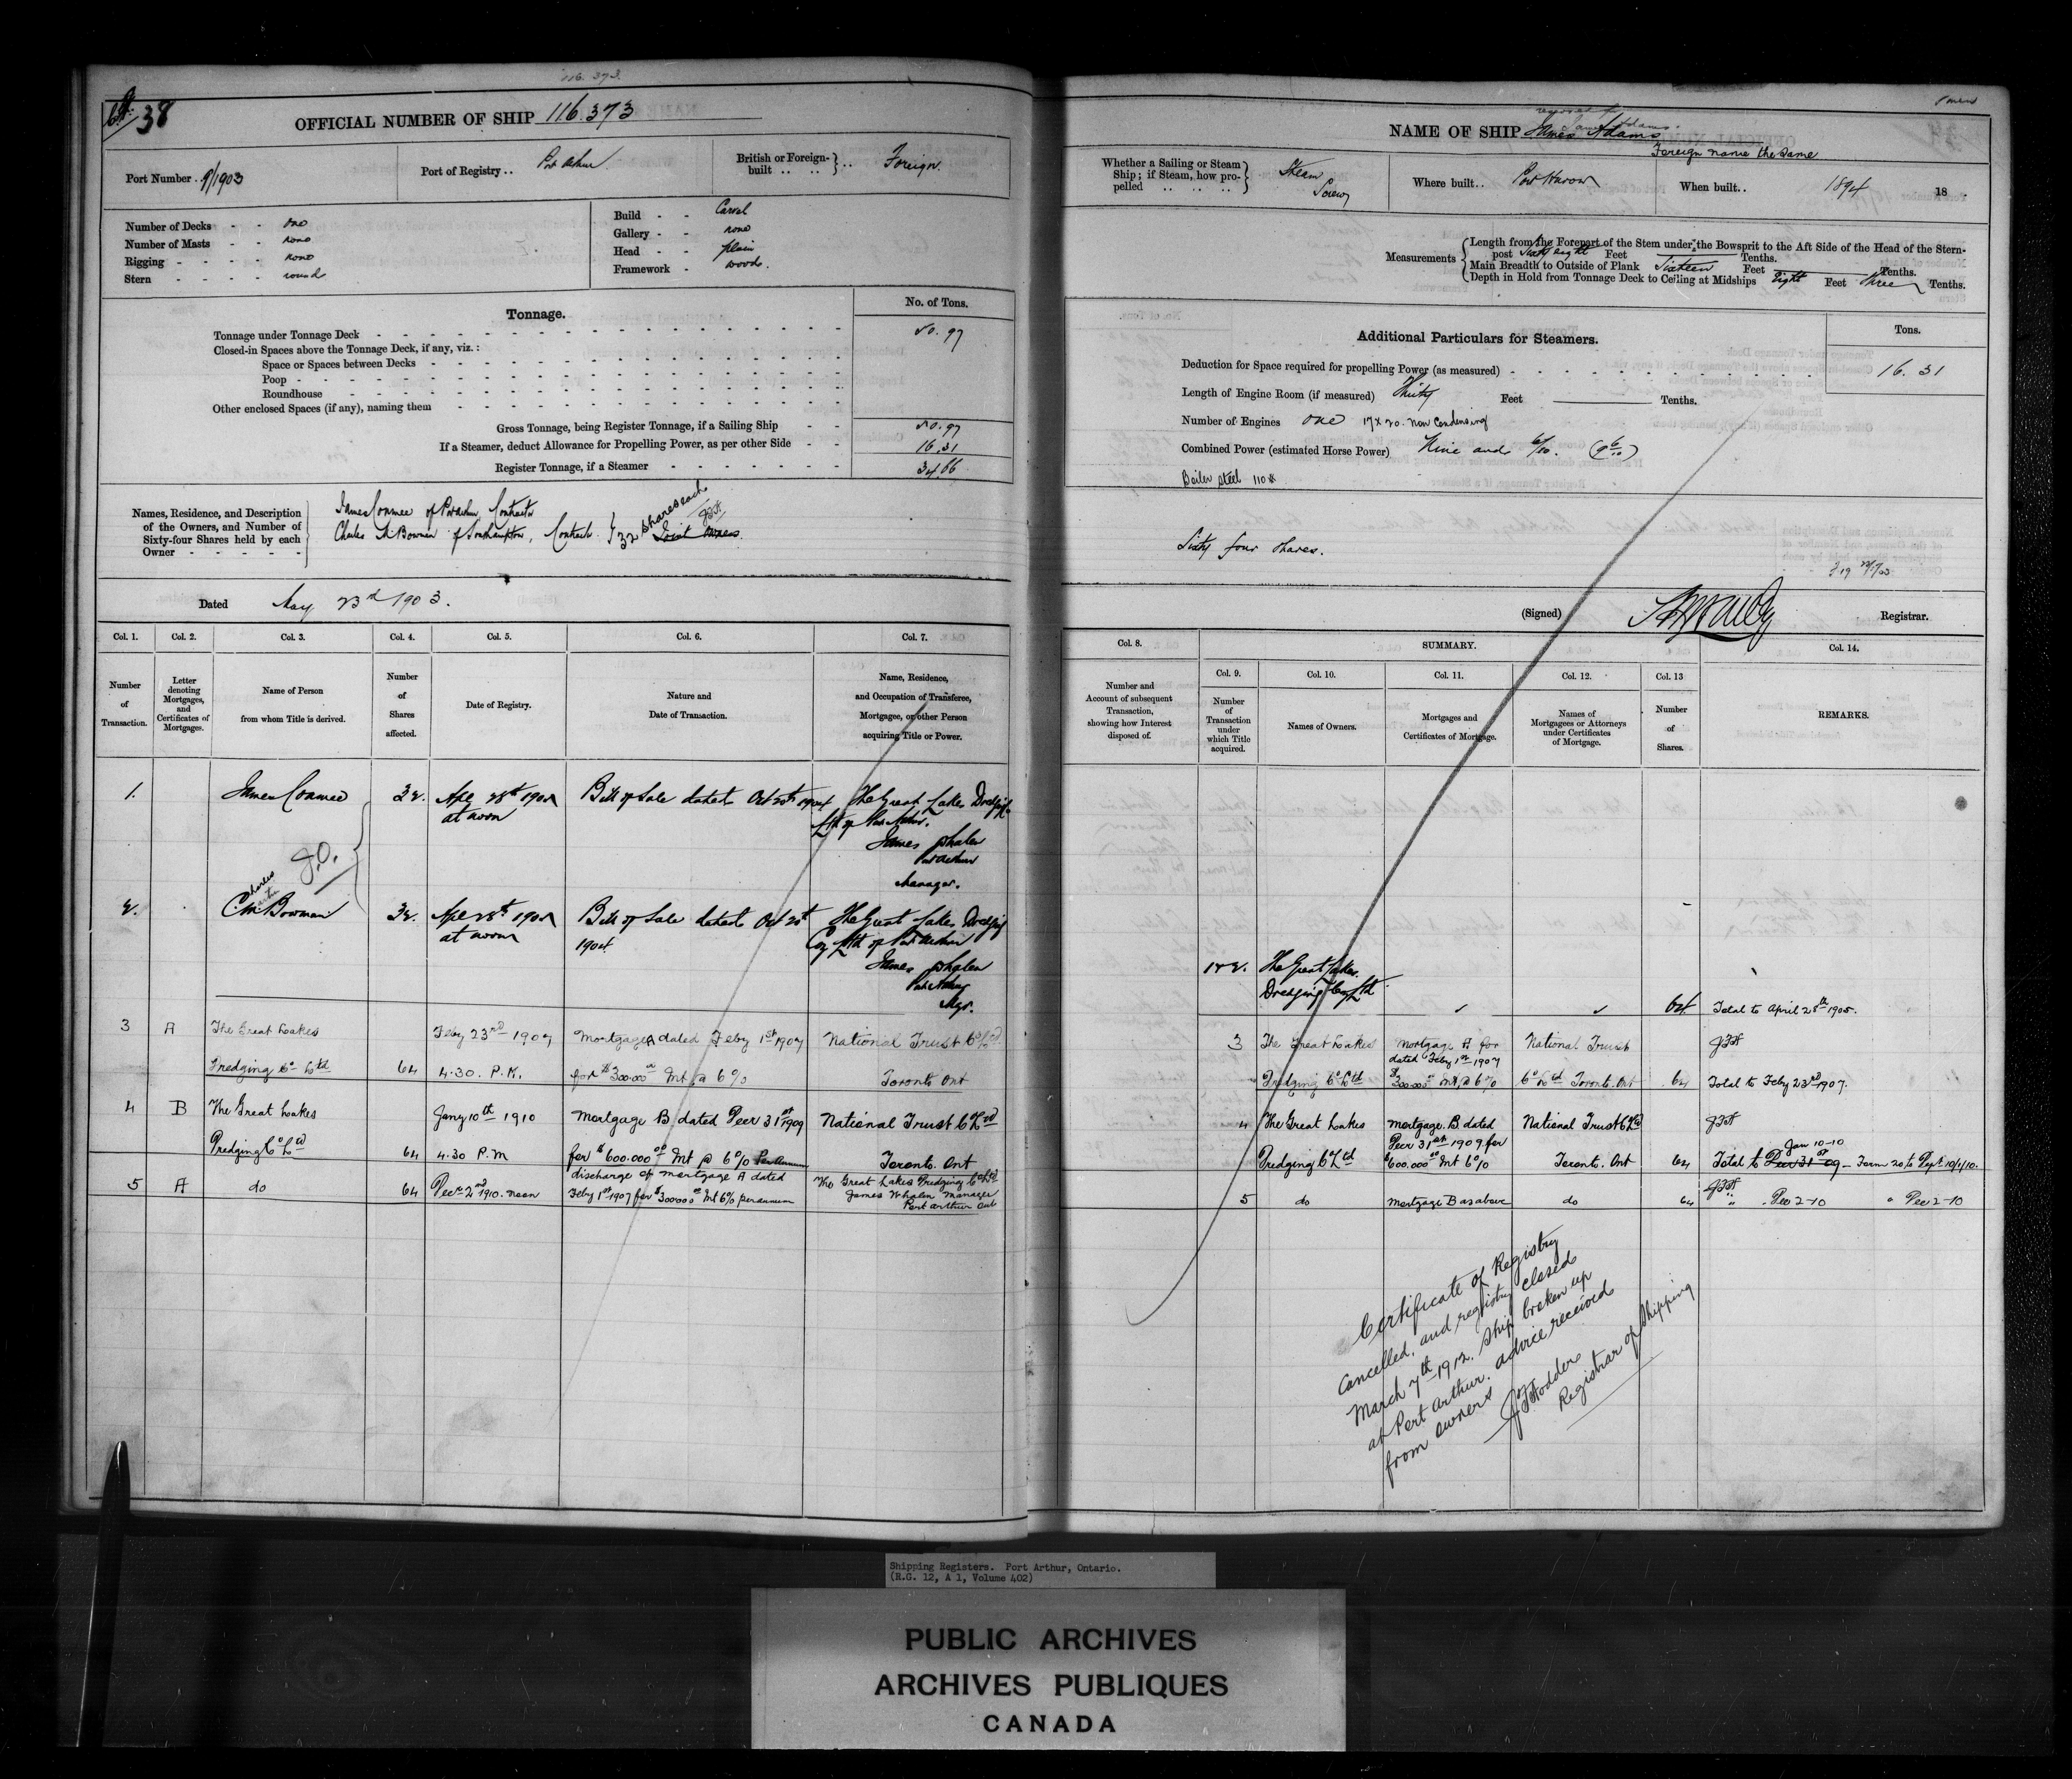 116.373.
38
OFFICIAL NUMBER OF SHIP 116.373
Port Number. 9/1903
Port of Registry.. Port Arthur
British or Foreign-built .. .. } .. Foreign.
Number of Decks - - one
Number of Masts - - none
Rigging - - - - none
Stern - - - - round
Build - - Carvel
Gallery - - none
Head - - plain
Framework - wood.
Tonnage.
No. of Tons.
Tonnage under Tonnage Deck 50.97
Closed-in Spaces above the Tonnage Deck, if any, viz.:
Space or Spaces between Decks
Poop
Roundhouse
Other enclosed Spaces (if any), naming them
Gross Tonnage, being Register Tonnage, if a Sailing Ship 50.97
If a Steamer, deduct Allowance for Propelling Power, as per other Side 16.31
Register Tonnage, if a Steamer 34.66
Names, Residence, and Description
of the Owners, and Number of
Sixty-four Shares held by each
Owner
James Conmee of Port Arthur, Contractor
Charles M Bowman of Southampton, Contractor } 32 shares each
Joint Owners.
Dated May 23rd 1903.
Col. 1. Col. 2. Col. 3. Col. 4. Col. 5. Col. 6. Col. 7.
Number of Transaction.
Letter denoting Mortgages, and Certificates of Mortgages.
Name of Person from whom Title is derived.
Number of Shares affected.
Date of Registry.
Nature and Date of Transaction.
Name, Residence, and Occupation of Transferee, Mortgagee, or other Person acquiring Title or Power.
1. James Conmee 32. Apl 28th 1905 at noon Bill of Sale dated Oct 20th 1904 The Great Lakes Dredging Co
Ltd of Port Arthur.
James Whalen
Port Arthur
Manager.
2. Charles
CM Bowman 32. Apl 28th 1905 at noon Bill of Sale dated Oct 20th 1904 The Great Lakes Dredging
Coy Ltd of Port Arthur
James Whalen
Port Arthur
Mgr.
3 A The Great Lakes Feby 23rd 1907 Mortgage A dated Feby 1st 1907 National Trust Co Ltd
Dredging Co Ltd 64 4.30. P.M. for $300.000 00 Int @ 6% Toronto Ont
4 B The Great Lakes Jany 10th 1910 Mortgage B dated Decr 31st 1909 National Trust Co Ltd
Dredging Co Ltd 64 4.30 P.M for $600.000 00 Int @ 6% Per Annum Toronto. Ont
5 A do 64 Decr 2nd 1910. noon discharge of mortgage A dated
Feby 1st 1907 for $300000 00 Int 6% per annum
The Great Lakes Dredging Co Ltd
James Whalen Manager
Port Arthur Ont
NAME OF SHIP James Adams
James Adams.
Foreign name the same
Whether a Sailing or Steam Ship; if Steam, how propelled .. .. .. } Steam Screw
Where built.. Port Huron
When built.. 1894 18
Measurements
Length from the Forepart of the Stem under the Bowsprit to the Aft Side of the Head of the Stern-
post Sixty eight Feet Tenths.
Main Breadth to Outside of Plank Sixteen Feet Tenths.
Depth in Hold from Tonnage Deck to Ceiling at Midships Eight Feet Three Tenths.
Additional Particulars for Steamers.
Tons.
Deduction for Space required for propelling Power (as measured) 16.31
Length of Engine Room (if measured) Thirty Feet Tenths.
Number of Engines One 17 x 20. Non Condensing
Combined Power (estimated Horse Power) Nine and 6/10. (9 6/10)
Boiler steel 110#
Sixty four shares.
(Signed) Registrar.
Col. 8. SUMMARY. Col. 14.
Col. 9. Col. 10. Col. 11. Col. 12. Col. 13
Number and Account of subsequent Transaction, showing how Interest disposed of.
Number of Transaction under which Title acquired.
Names of Owners.
Mortgages and Certificates of Mortgage.
Names of Mortgagees or Attorneys under Certificates of Mortgage.
Number of Shares.
REMARKS.
1 & 2. The Great Lakes
Dredging Coy Ltd 64 Total to April 28th 1905.
3 The Great Lakes Mortgage A for National Trust
dated Feby 1st 1907
Dredging Co Ltd $300.000 00 Int @ 6% Co Ltd Toronto. Ont 64 Total to Feby 23rd 1907.
4 The Great Lakes Mortgage. B. dated National Trust Co Ltd
Decr 31st 1909 for Jan 10-10
Dredging Co Ltd $600.000 00 Int 6% Toronto. Ont 64 Total to Decr 31st 09 - Form 20 to Dept. 10/1/10.
5 do Mortgage B as above do 64 " . Dec 2-10 " Dec 2-10
Certificate of Registry
cancelled, and registry closed
March 7th 1912. Ship broken up
at Port Arthur. advice received
from owners
Registrar of Shipping
Shipping Registers. Port Arthur, Ontario.
(R.G. 12, A 1, Volume 402)
PUBLIC ARCHIVES
ARCHIVES PUBLIQUES
CANADA